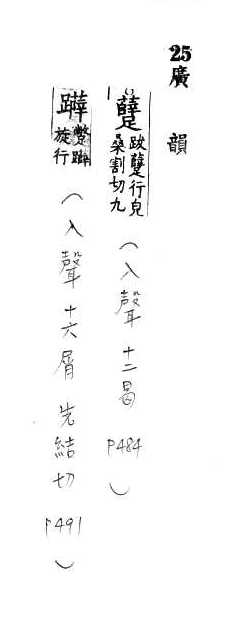 25廣韻
躠 跋躠行皃
桑割切九
（入聲十二曷 P484）
蹩躠
旋行
（入聲十六屑 先結切 P491）